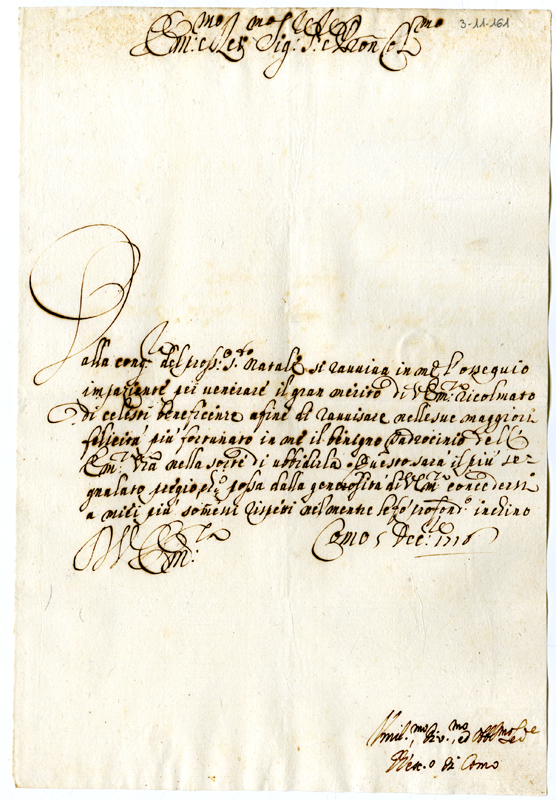 3-11-161
Em:mo e Rev:mo Sig:re P:re e Pron Col:mo
Dalla cong:ra del pross:o S:to Natale si ravviva in me l'ossequio
impaziente per venerare il gran merito di V Em:za ricolmato
di celesti beneficenze a fine di ravvisare nelle sue maggiori
felicità più fortunato in me il benigno Padrocinio dell' E
Em:za Vra nella sorte di ubbidirla. Questo sarà il più se-
gnalato pregio possa dalla generosità di V Em:za concedersi
a miei più somessi rispeti nel mentre le fò profond:o inchino
Di V Em:za
Como 5 Dec:bre 1716
Umil:mo Div:mo, ed
di Como